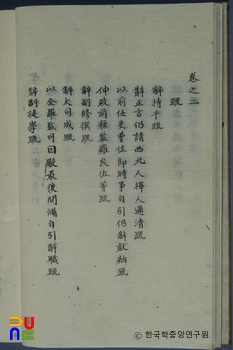 卷之二
疏
辭持平疏
辭正言仍請西北人擇人通淸疏
以前任吏曹佐郞時事自引仍辭
伸救前縣監羅良佐等疏
辭副修撰疏
辭大司成疏
以全羅監司回啟最後開備自引辭職疏
辭副提學疏
ⓒ 한국학중앙연구원